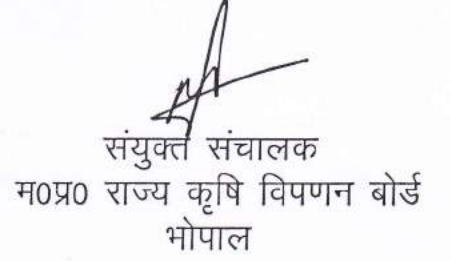 संयुक्त संचालक
म0प्र0 राज्य कृषि विपणन बोर्ड
भोपाल